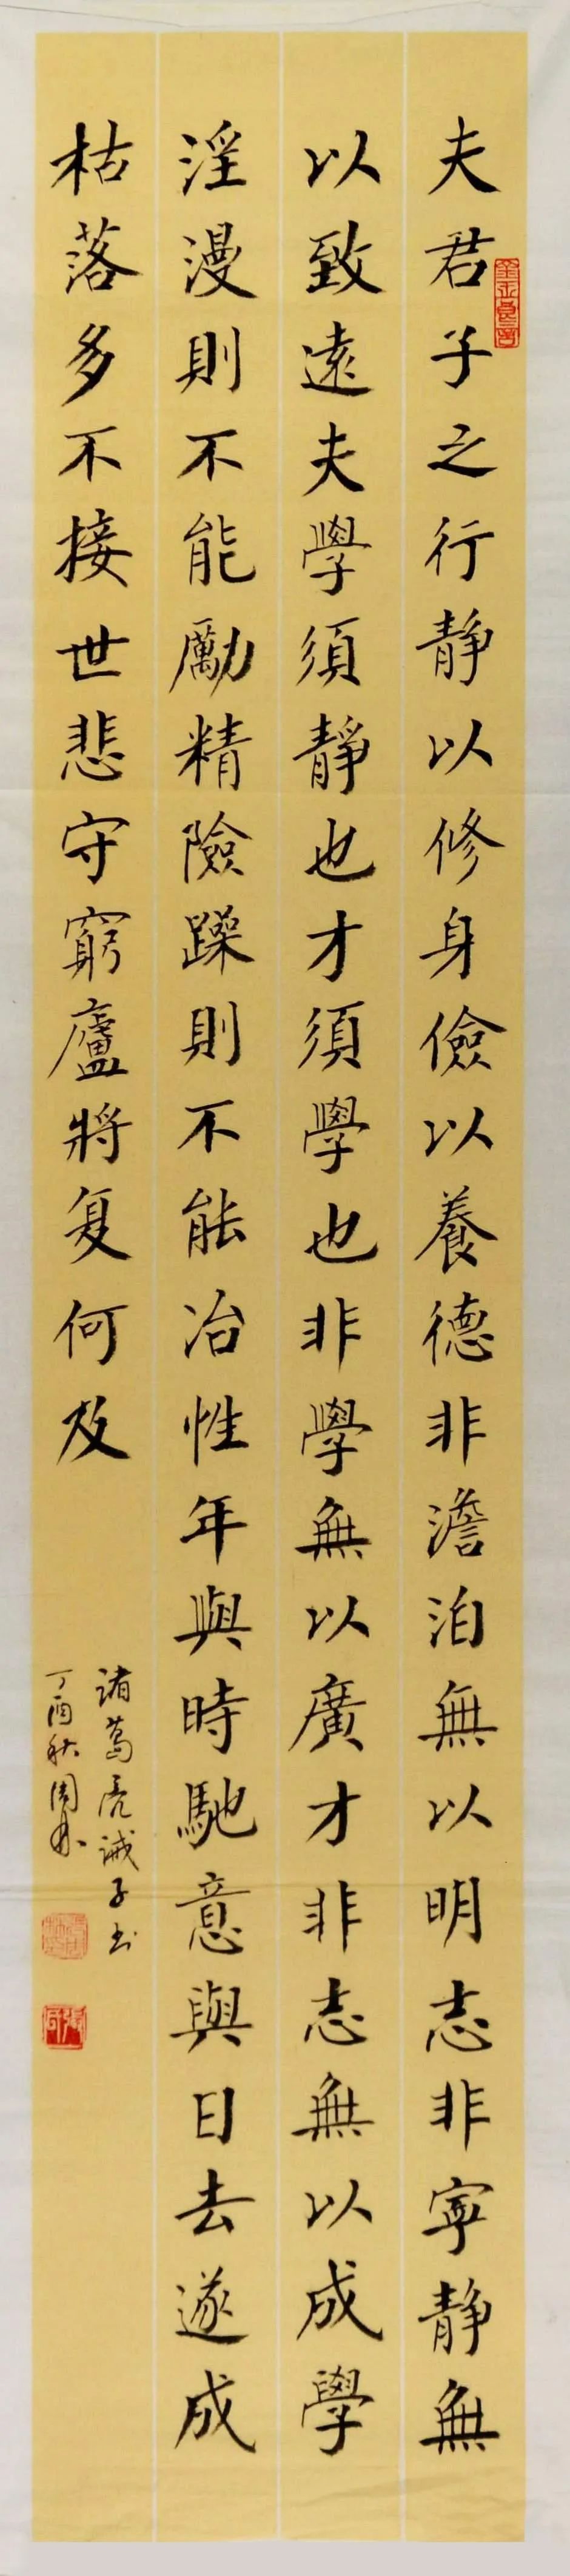 夫君子之行靜以修身儉以養德非澹泊無以明志非寧靜無
以致遠夫學須靜也才須學也非學無以廣才非志無以成學
淫漫則不能勵精險躁則不能冶性年與時馳意與日去遂成
枯落多不接世悲守窮廬將复何及
诸葛亮诫子书
丁酉秋周林